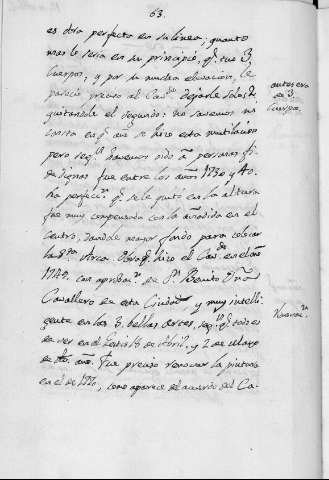 63.
es otra perfecta en su linea, quanto
mas lo seria en su principio, q.e tuvo 3
Cuerpos, y por su mucha elevacion, le
parecio preciso al Cav.do dejarle solos dos
quitandole el segundo: no savemos
antes era
en 3.
Cuerpos
en q.e año se hizo esta mutilacion
pero seg.n havemos oido à personas fi-
dedignas fue entre los años 1730 y 40.
la perfecc.n q.e se le quitò en la altura
fue muy compensada con la añadida en el
centro, dandole mayor fondo para colocar
hizo el Cav.do en el año
con aprobac.n de D.n Benito
Cavallero de esta Ciudad y muy inteli-
gente en las 3. bellas artes, seg.n q.e todo es
de ver en el de Abril, y 2 de Mayo
de año. Fue preciso renovar la pintura
en el de como aparece del acuerdo del Ca-